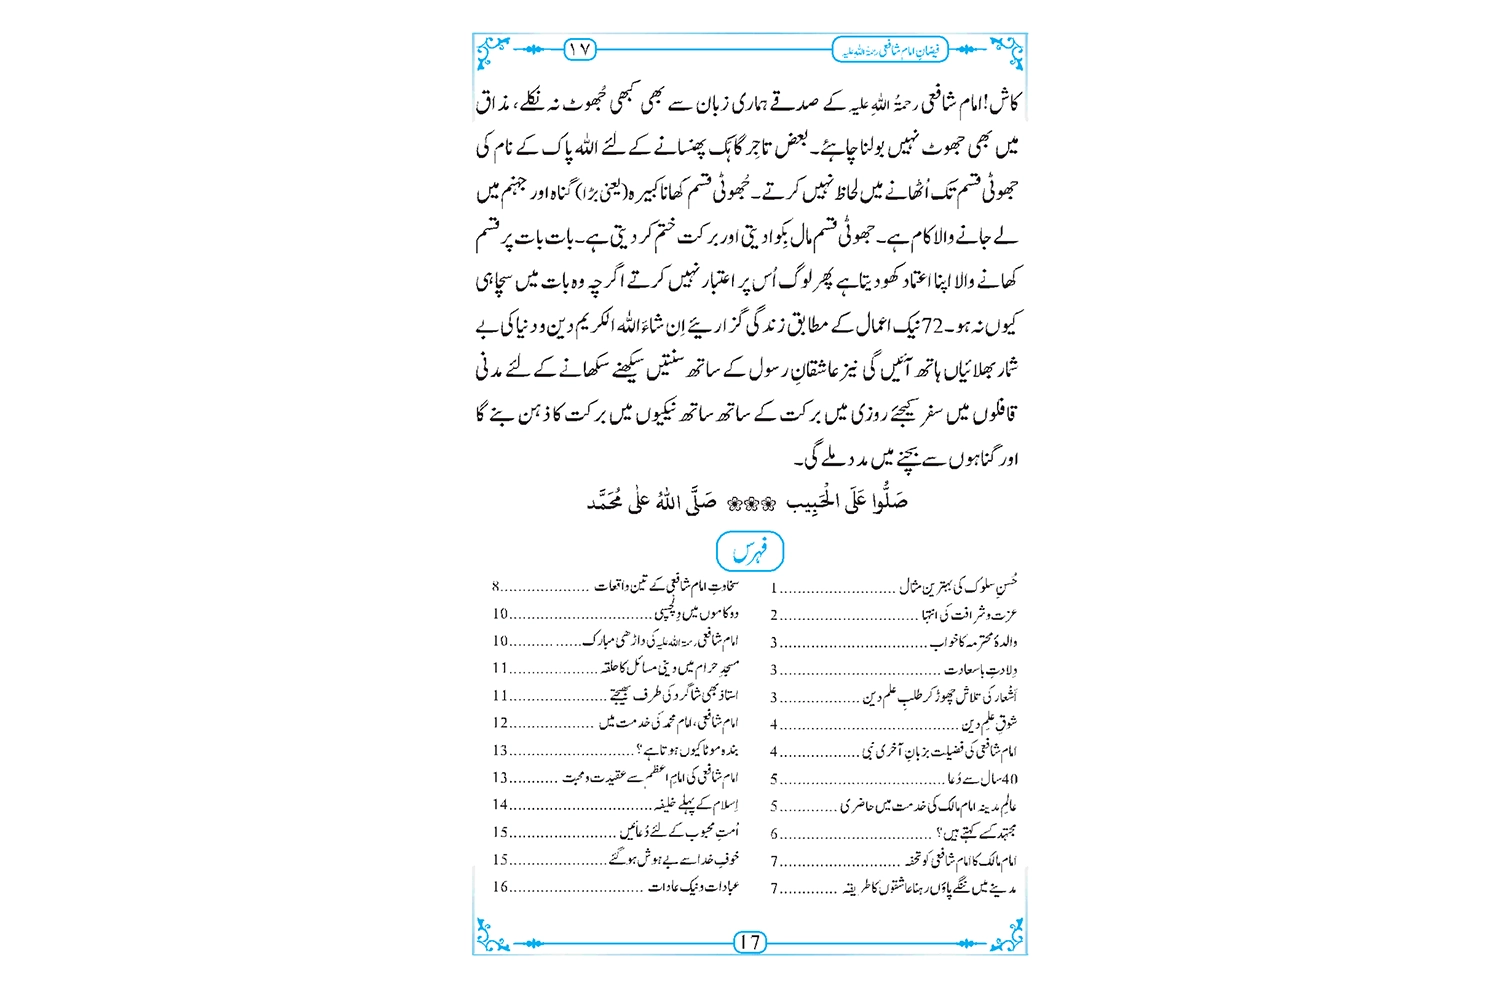 فیضانِ امام شافعی رحمۃُ اللہِ علیہ
۱۷
کاش! امام شافعی رحمۃُ اللہِ علیہ کے صدقے ہماری زبان سے بھی کبھی جُھوٹ نہ نکلے، مذاق
میں بھی جھوٹ نہیں بولنا چاہئے۔ بعض تاجِر گاہَک پھنسانے کے لئے اللہ پاک کے نام کی
جھوٹی قسم تک اُٹھانے میں لحاظ نہیں کرتے۔ جُھوٹی قسم کھانا کبیرہ (یعنی بڑا) گناہ اور جہنم میں
لے جانے والا کام ہے۔ جھوٹی قسم مال بِکوا دیتی اور برکت ختم کر دیتی ہے۔ بات بات پر قسم
کھانے والا اپنا اعتماد کھو دیتا ہے پھر لوگ اُس پر اعتبار نہیں کرتے اگرچہ وہ بات میں سچا ہی
کیوں نہ ہو۔ 72 نیک اعمال کے مطابق زندگی گزاریئے اِن شاءَ اللہ الکریم دین و دنیا کی بے
شمار بھلائیاں ہاتھ آئیں گی نیز عاشقانِ رسول کے ساتھ سنتیں سیکھنے سکھانے کے لئے مدنی
قافلوں میں سفر کیجئے روزی میں برکت کے ساتھ ساتھ نیکیوں میں برکت کا ذہن بنے گا
اور گناہوں سے بچنے میں مدد ملے گی۔
صَلُّوا عَلَی الْحَبِیب ❀❀❀ صَلَّی اللہُ عَلٰی مُحَمَّد
فہرس
حُسنِ سلوک کی بہترین مثال ........................... 1
عزت و شرافت کی انتہا ................................ 2
والدۂ محترمہ کا خواب .................................. 3
وِلادتِ باسعادت ...................................... 3
اَشعار کی تلاش چھوڑ کر طلبِ علم دین ................... 3
شوقِ علمِ دین ......................................... 4
امام شافعی کی فضیلت بزبانِ آخری نبی ................... 4
40 سال سے دُعا ...................................... 5
عالمِ مدینہ امام مالک کی خدمت میں حاضری ............. 5
مجتہد کسے کہتے ہیں؟ ................................... 6
امام مالک کا امام شافعی کو تحفہ ............................ 7
مدینے میں ننگے پاؤں رہنا عاشقوں کا طریقہ ............. 7
سخاوتِ امام شافعی کے تین واقعات .................... 8
دو کاموں میں دِلچسپی ................................. 10
امام شافعی رحمۃ اللہ علیہ کی داڑھی مبارک ................ 10
مسجدِ حرام میں دینی مسائل کا حلقہ .................... 11
استاذ بھی شاگرد کی طرف بھیجتے ....................... 11
امام شافعی، امام محمد کی خدمت میں .................... 12
بندہ موٹا کیوں ہوتا ہے؟ ............................. 13
امام شافعی کی امامِ اعظم سے عقیدت و محبت ........... 13
اِسلام کے پہلے خلیفہ ................................. 14
اُمتِ محبوب کے لئے دُعائیں ......................... 15
خوفِ خدا سے بے ہوش ہو گئے ....................... 15
عبادات و نیک عادات ............................... 16
17